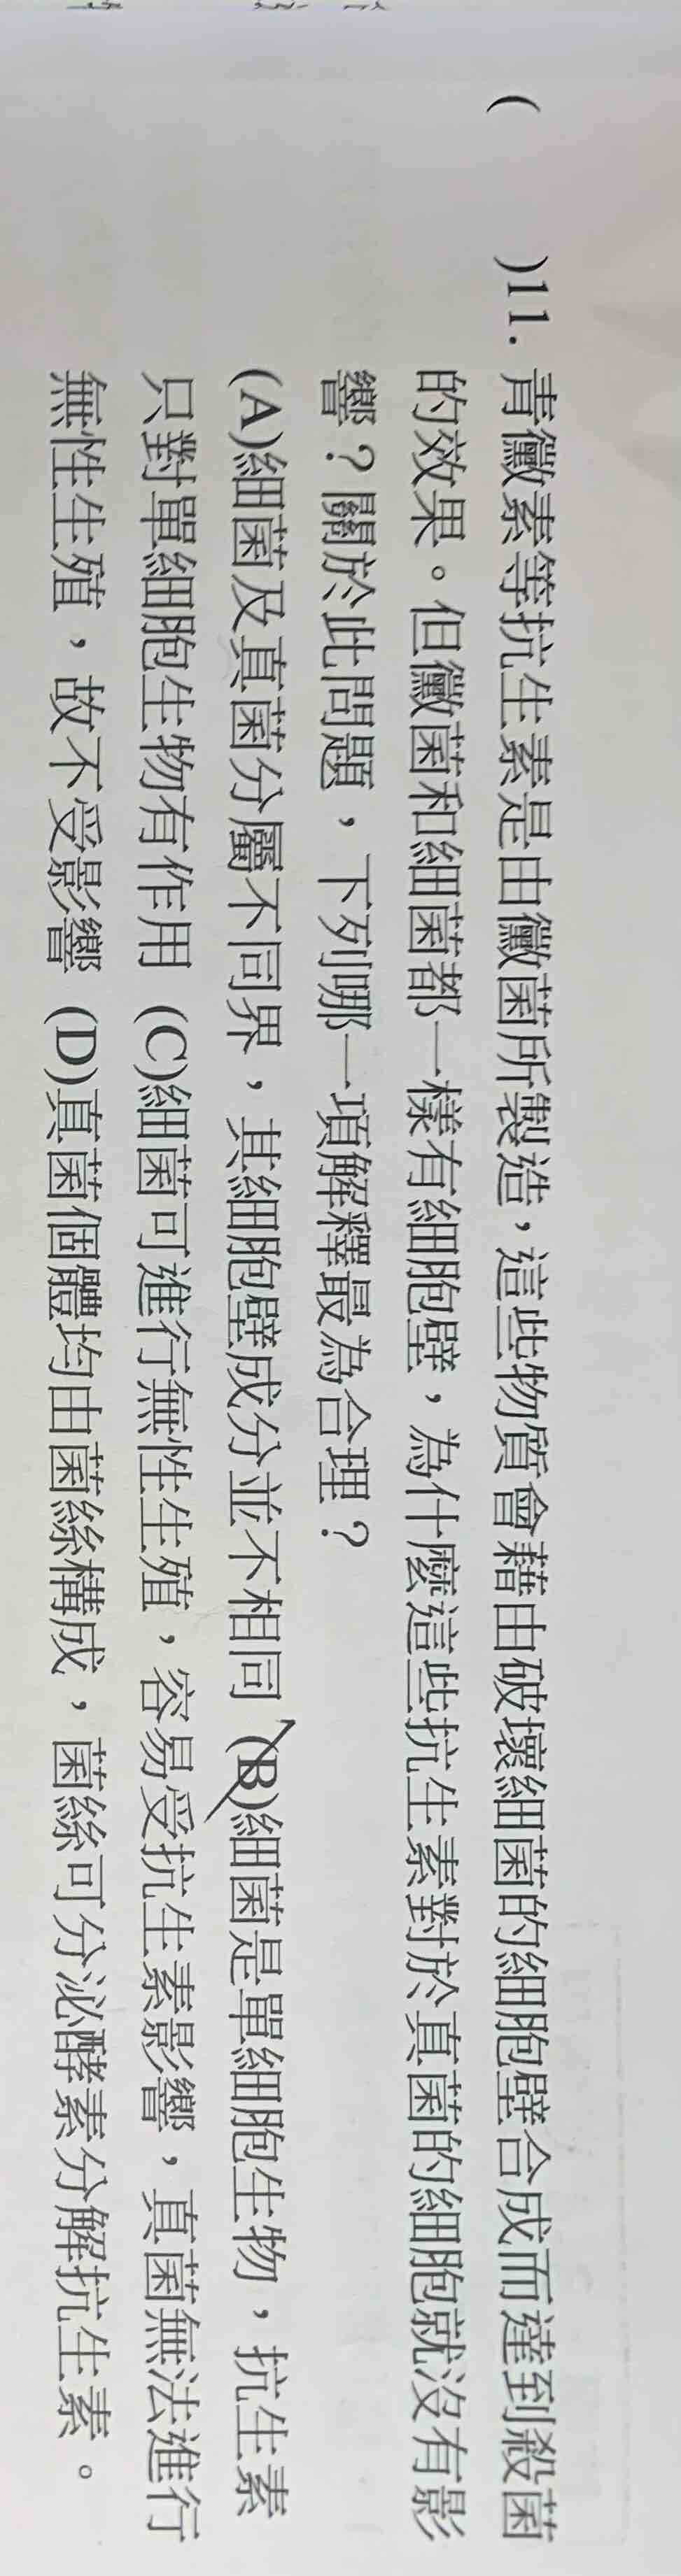 (　　)11. 青黴素等抗生素是由黴菌所製造，這些物質會藉由破壞細菌的細胞壁合成而達到殺菌
的效果。但黴菌和細菌都一樣有細胞壁，為什麼這些抗生素對於真菌的細胞就沒有影
響？關於此問題，下列哪一項解釋最為合理？
(A)細菌及真菌分屬不同界，其細胞壁成分並不相同 (B)細菌是單細胞生物，抗生素
只對單細胞生物有作用 (C)細菌可進行無性生殖，容易受抗生素影響，真菌無法進行
無性生殖，故不受影響 (D)真菌個體均由菌絲構成，菌絲可分泌酵素分解抗生素。